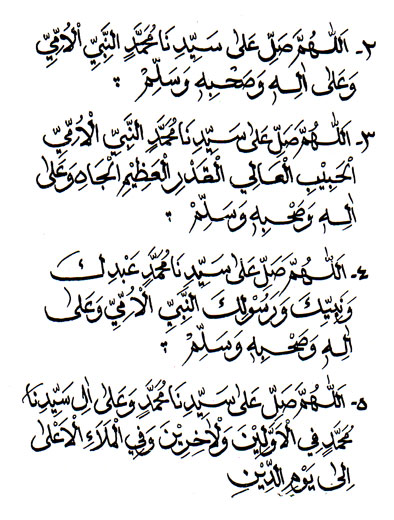 ٢- اَللّٰهُمَّ صَلِّ عَلٰى سَيِّدِنَا مُحَمَّدٍ النَّبِيِّ الْاُمِّيِّ
وَعَلٰى اٰلِهٖ وَصَحْبِهٖ وَسَلِّمْ ؞
٣- اَللّٰهُمَّ صَلِّ عَلٰى سَيِّدِنَا مُحَمَّدٍ النَّبِيِّ الْاُمِّيِّ
الْحَبِيْبِ الْعَالِي الْقَدْرِ الْعَظِيْمِ الْجَاهِ وَعَلٰى
اٰلِهٖ وَصَحْبِهٖ وَسَلِّمْ ؞
٤- اَللّٰهُمَّ صَلِّ عَلٰى سَيِّدِنَا مُحَمَّدٍ عَبْدِكَ
وَنَبِيِّكَ وَرَسُوْلِكَ النَّبِيِّ الْاُمِّيِّ وَعَلٰى
اٰلِهٖ وَصَحْبِهٖ وَسَلِّمْ ؞
٥- اَللّٰهُمَّ صَلِّ عَلٰى سَيِّدِنَا مُحَمَّدٍ وَعَلٰى اٰلِ سَيِّدِنَا
مُحَمَّدٍ فِي الْاَوَّلِيْنَ وَلْاٰخِرِيْنَ وَفِي الْمَلَاءِ الْاَعْلٰى
اِلٰى يَوْمِ الدِّيْنِ